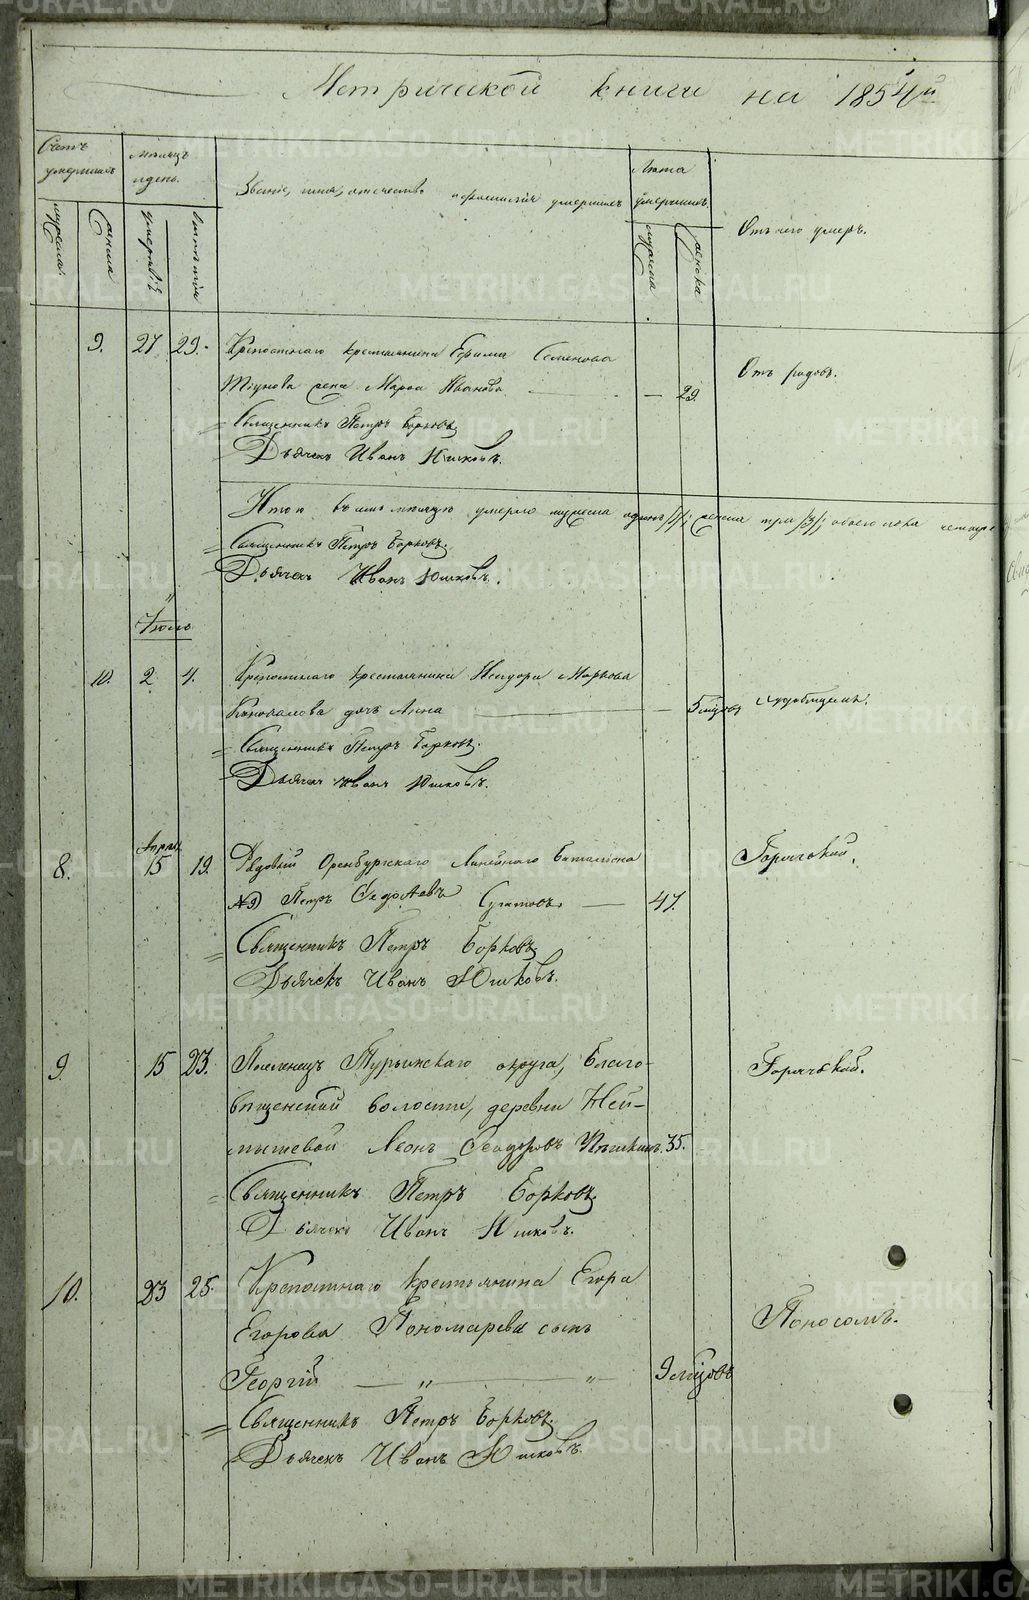 Метрической книги на 1854й
Счетъ умершихъ
Мѣсяцъ и день.
Званіе, имя, отечество и фамилія умершихъ
Лѣта умершихъ.
Отъ чего умеръ.
мужеска.
женска
смерти
погребенія
мужеска
женска
9. 27 29. Крепостнаго крестьянина Ефима Семенова
жена Марѳа Иванова — 29. Отъ родовъ.
Священникъ Петръ Борковъ
Дьячекъ Иванъ Юшковъ.
Итого въ мѣсяцѣ умерло мужеска одинъ /1/, женска три /3/, обоего пола четыре
Священникъ Петръ Борковъ.
Дьячекъ Иванъ Юшковъ.
Іюль
10. 2. 4. Крепостнаго крестьянина Маркова
Коновалова дочь Анна — 5 мѣсяцовъ
Священникъ Петръ Борковъ.
Дьячекъ Иванъ Юшковъ.
8. Апрѣль 15 19. Рядовый Оренбургскаго Линейнаго Баталіона
№ 9 Петръ 47. Горячкой.
Священникъ Петръ Борковъ
Дьячекъ Иванъ Юшковъ.
9. 15 23. Туринскаго округа, Благо-
вѣщенской волости, деревни
Леонъ Ѳеодоровъ 35. Горячкой.
Священникъ Петръ Борковъ.
Дьячекъ Иванъ Юшковъ.
10. 23 25. Крепостнаго крестьянина Егора
Егорова Пономарева сынъ Поносомъ.
Георгій — " — " — 9 мѣсяцовъ
Священникъ Петръ Борковъ.
Дьячекъ Иванъ Юшковъ.
METRIKI.GASO-URAL.RU